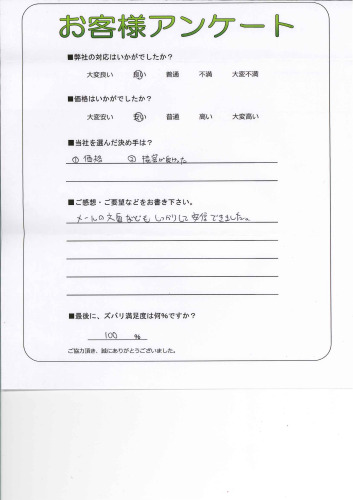 お客様アンケート
■弊社の対応はいかがでしたか？
大変良い 良い 普通 不満 大変不満
■価格はいかがでしたか？
大変安い 安い 普通 高い 大変高い
■当社を選んだ決め手は？
① 価格 ② 接客が良かった
■ご感想・ご要望などをお書き下さい。
メールの文面なども しっかりして安信できました。
■最後に、ズバリ満足度は何%ですか？
100 %
ご協力頂き、誠にありがとうございました。